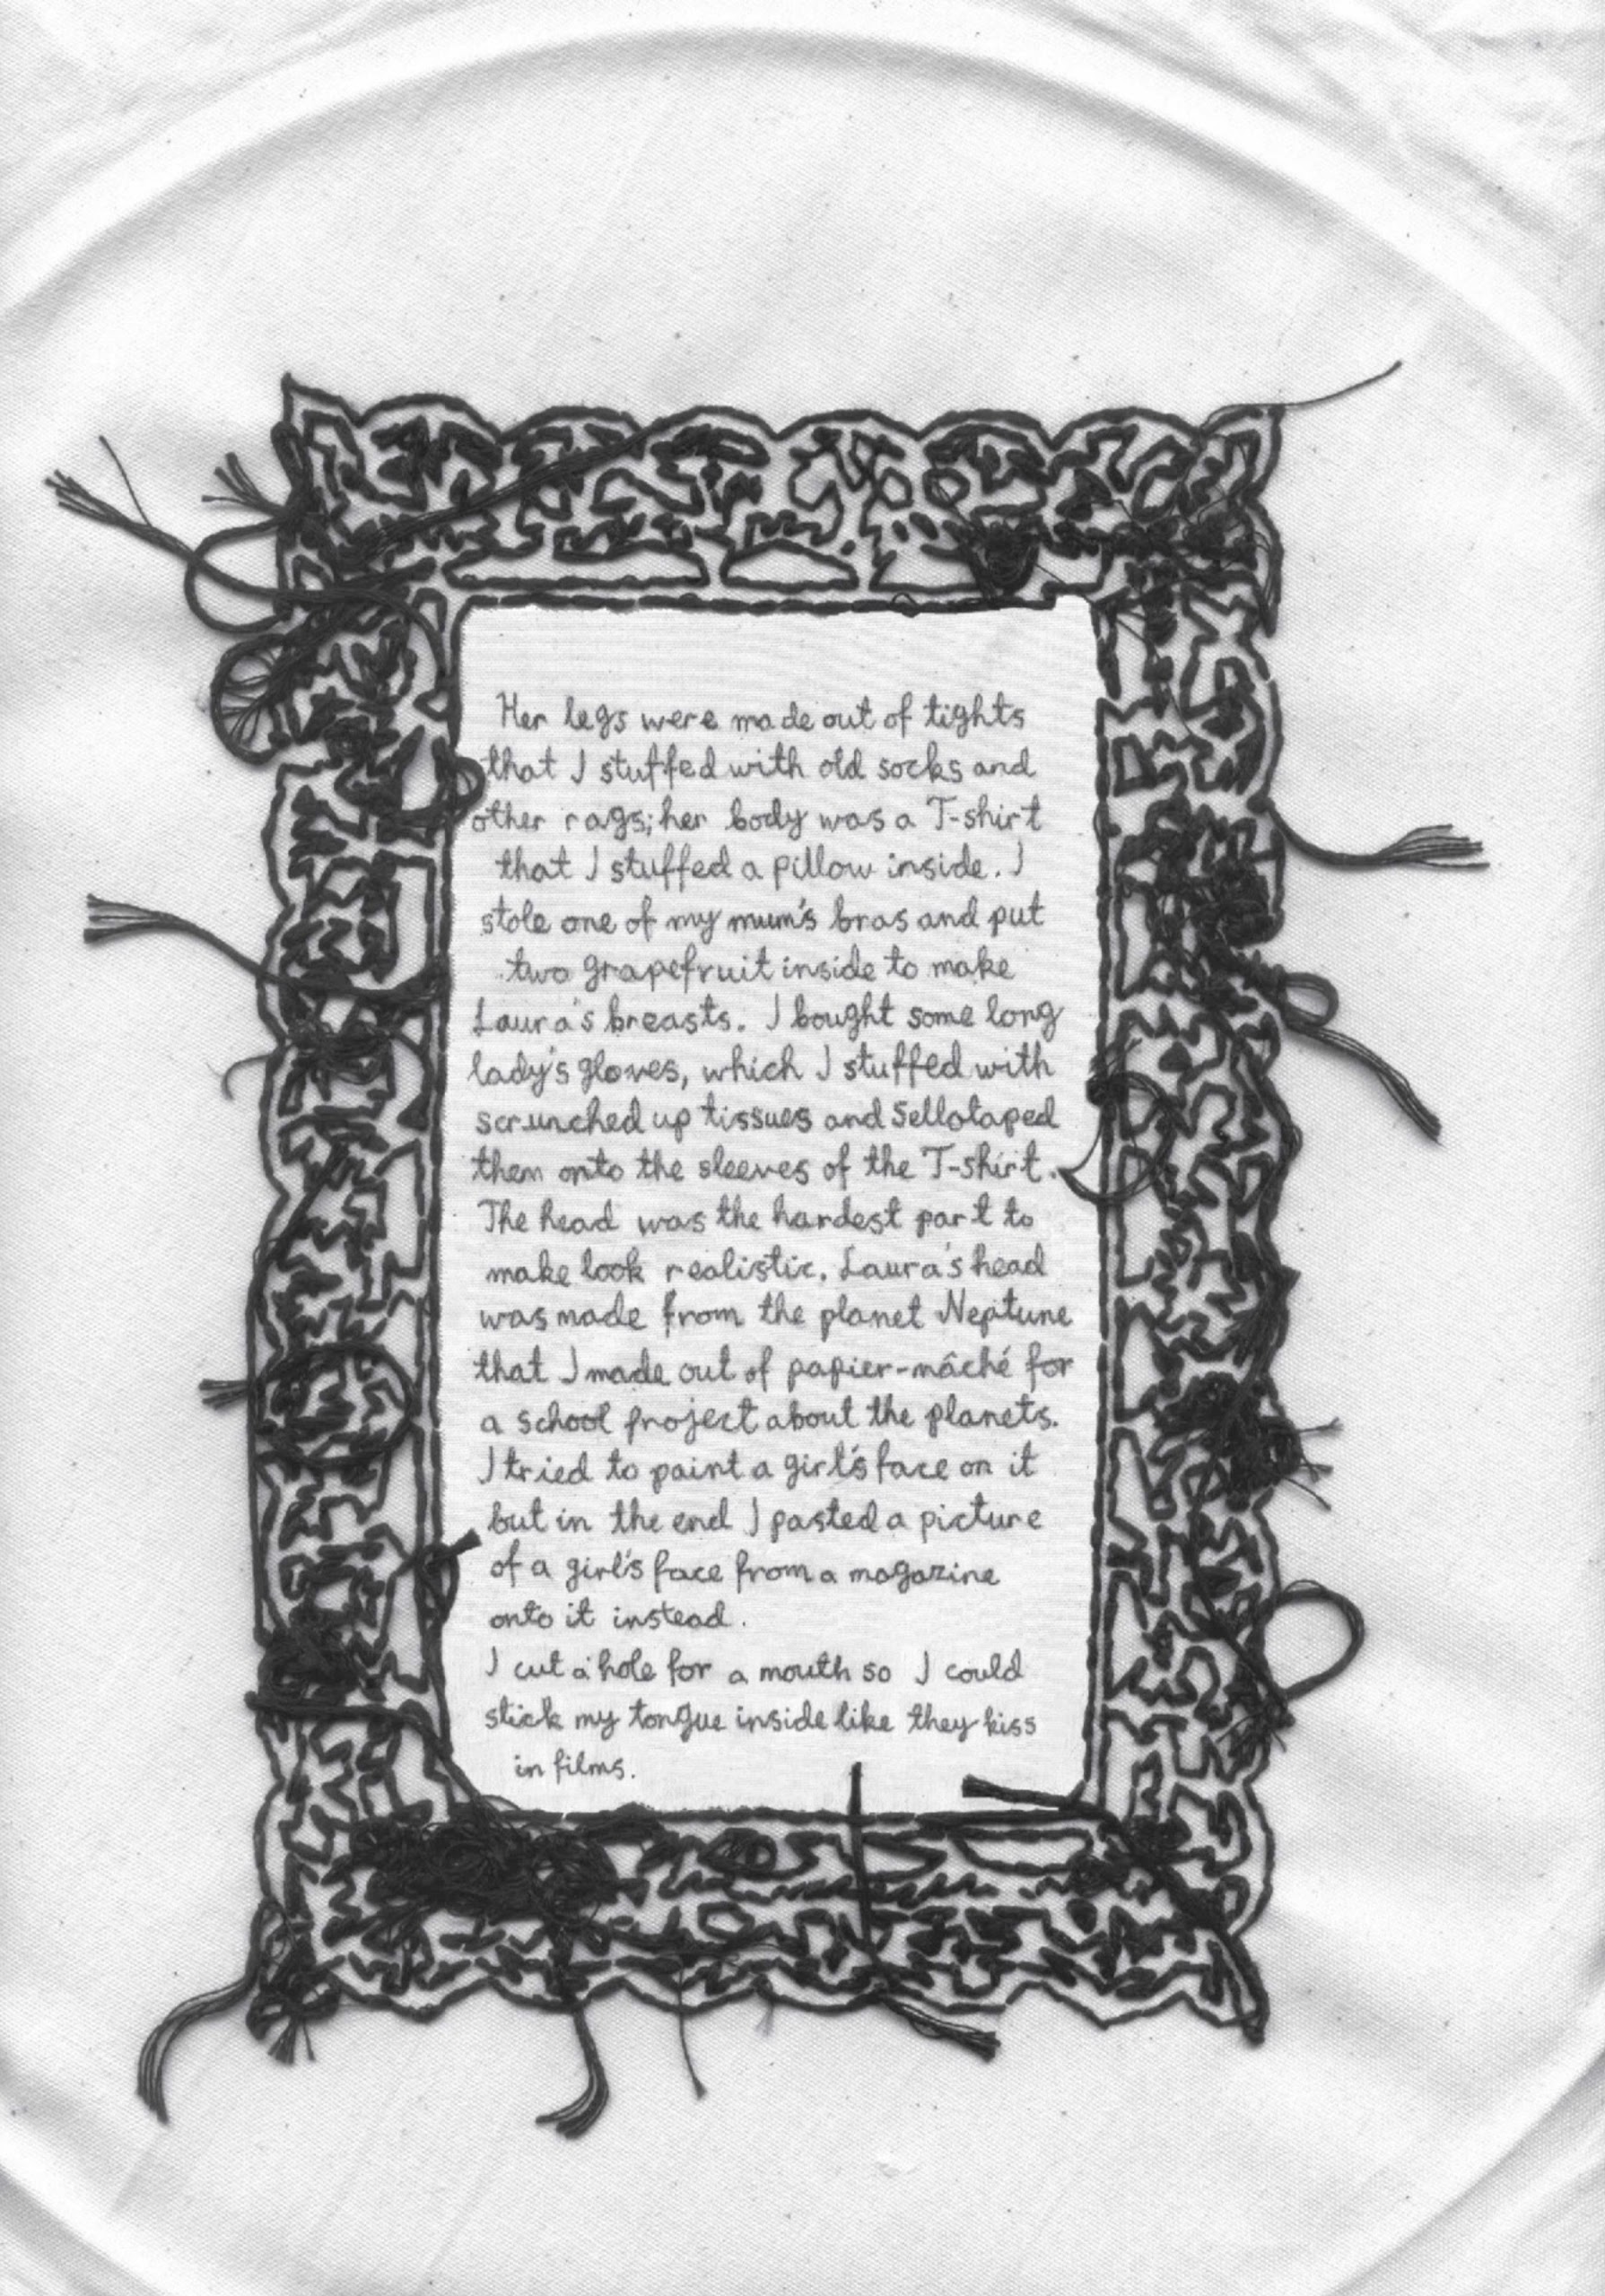 Her legs were made out of tights
that I stuffed with old socks and
other rags; her body was a T-shirt
that I stuffed a pillow inside. I
stole one of my mum's bras and put
two grapefruit inside to make
Laura's breasts. I bought some long
lady's gloves, which I stuffed with
scrunched up tissues and Sellotaped
them onto the sleeves of the T-shirt.
The head was the hardest part to
make look realistic. Laura's head
was made from the planet Neptune
that I made out of papier-mâché for
a school project about the planets.
I tried to paint a girl's face on it
but in the end I pasted a picture
of a girl's face from a magazine
onto it instead.
I cut a hole for a mouth so I could
stick my tongue inside like they kiss
in films.